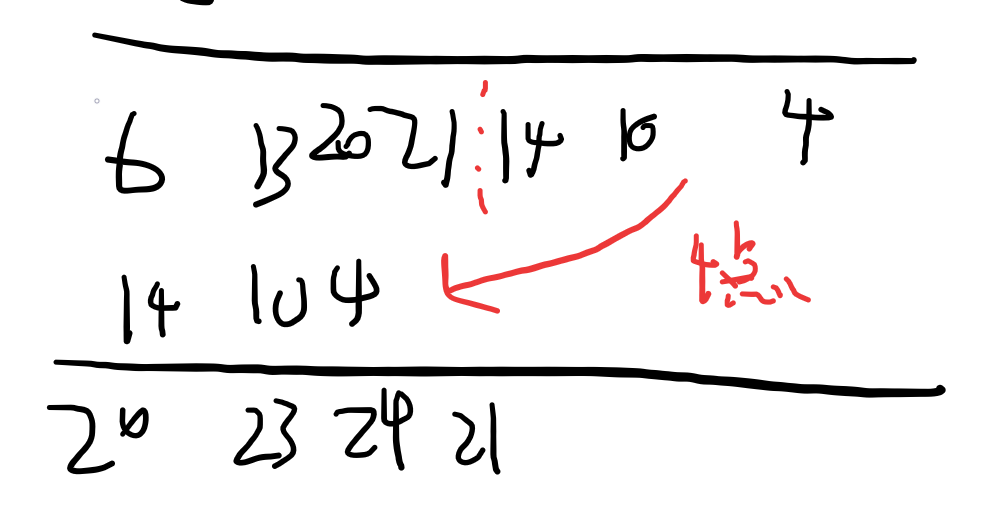 6 13 20 21 14 10 4
4点
14 10 4
20 23 24 21